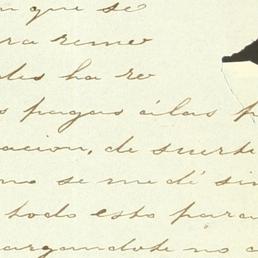 n que se
ra reme
des ha re
s pagas á las p
acion, de suerte
no se me dé sin
todo esto para
argandote no